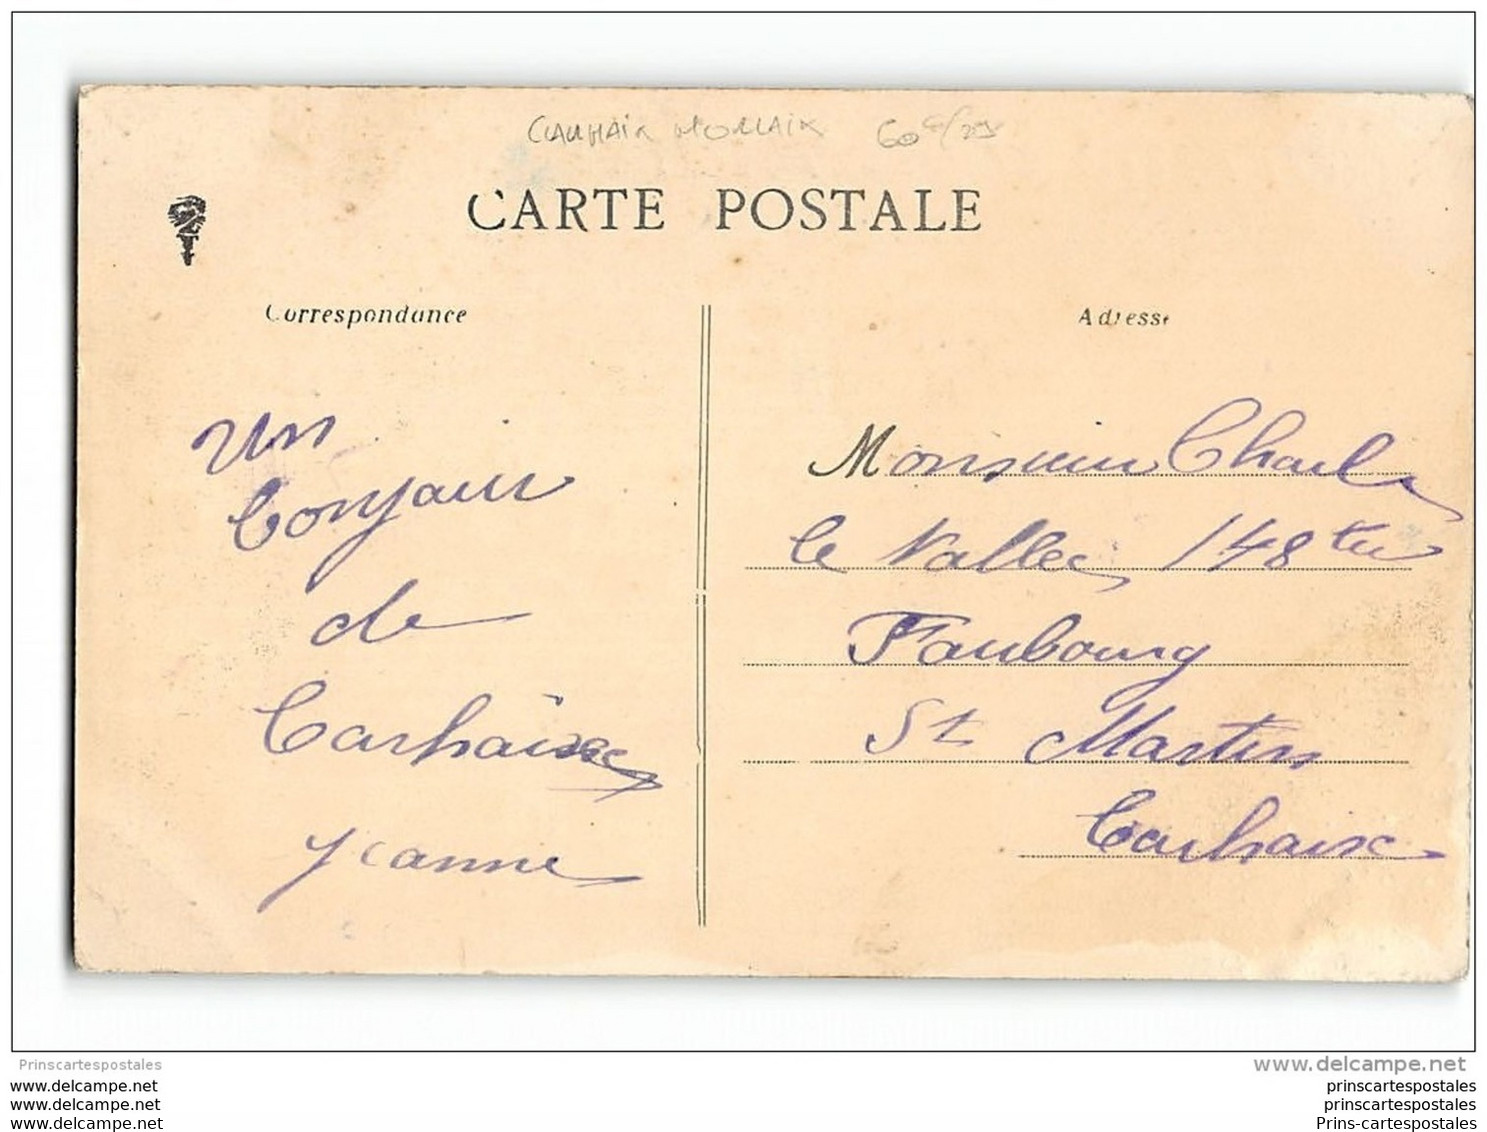 CARHAIX MORLAIX
CARTE POSTALE
Correspondance
Adresse
Un
bonjour
de
Carhaix
Jeanne
Monsieur Charles
le Vallee 148 ter
Faubourg
St Martin
Carhaix
Prinscartespostales
www.delcampe.net
www.delcampe.net
www.delcampe.net
www.delcampe.net
prinscartespostales
prinscartespostales
Prins-cartespostales